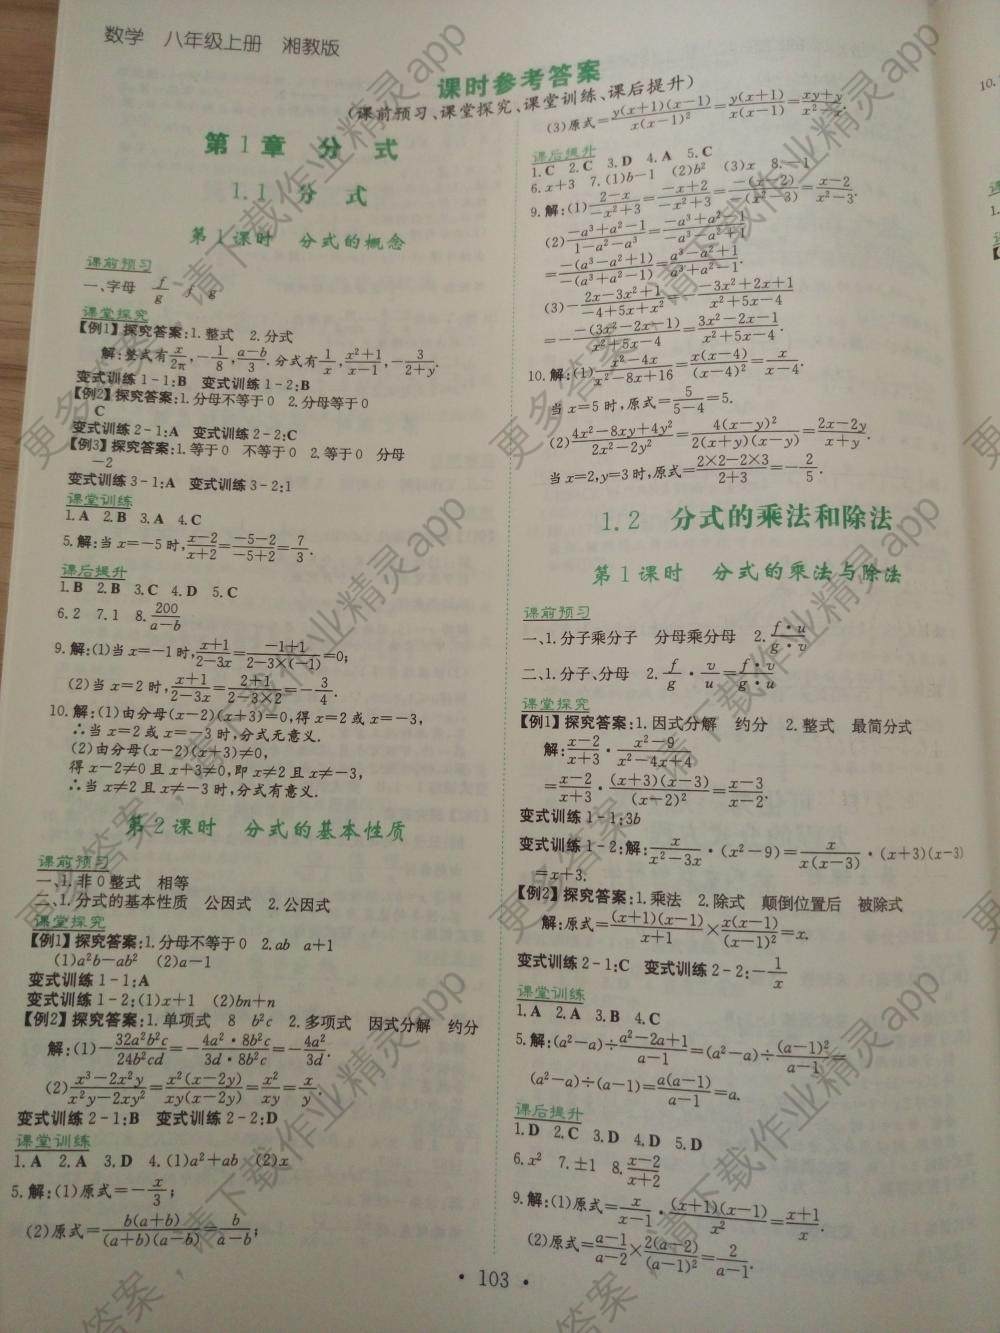 数学 八年级上册 湘教版
课时参考答案
(课前预习、课堂探究、课堂训练、课后提升)
第1章 分 式
1.1 分 式
第1课时 分式的概念
课前预习
一、字母 f/g f g
课堂探究
【例1】探究答案:1.整式 2.分式
解:整式有x/2π,-1/8,(a-b)/3.分式有1/x,(x²+1)/(x-1),-3/(2+y).
变式训练1-1:B 变式训练1-2:B
【例2】探究答案:1.分母不等于0 2.分母等于0
C
变式训练2-1:A 变式训练2-2:C
【例3】探究答案:1.等于0 不等于0 2.等于0 分母
-2
变式训练3-1:A 变式训练3-2:1
课堂训练
1.A 2.B 3.A 4.C
5.解:当x=-5时,(x-2)/(x+2)=(-5-2)/(-5+2)=7/3.
课后提升
1.B 2.B 3.C 4.D 5.C
6.2 7.1 8.200/(a-b)
9.解:(1)当x=-1时,(x+1)/(2-3x)=(-1+1)/(2-3×(-1))=0;
(2)当x=2时,(x+1)/(2-3x)=(2+1)/(2-3×2)=-3/4.
10.解:(1)由分母(x-2)(x+3)=0,得x=2或x=-3,
∴当x=2或x=-3时,分式无意义.
(2)由分母(x-2)(x+3)≠0,
得x-2≠0且x+3≠0,即x≠2且x≠-3,
∴当x≠2且x≠-3时,分式有意义.
第2课时 分式的基本性质
课前预习
一、1.非0整式 相等
二、1.分式的基本性质 公因式 2.公因式
课堂探究
【例1】探究答案:1.分母不等于0 2.ab a+1
(1)a²b-ab² (2)a-1
变式训练1-1:A
变式训练1-2:(1)x+1 (2)bn+n
【例2】探究答案:1.单项式 8 b²c 2.多项式 因式分解 约分
解:(1)-32a²b²c/24b²cd=-4a²·8b²c/3d·8b²c=-4a²/3d.
(2)(x³-2x²y)/(x²y-2xy²)=x²(x-2y)/xy(x-2y)=x²/xy=x/y.
变式训练2-1:B 变式训练2-2:D
课堂训练
1.A 2.A 3.D 4.(1)a²+ab (2)x
5.解:(1)原式=-x/3;
(2)原式=b(a+b)/(a+b)(a-b)=b/(a-b);
(3)原式=y(x+1)(x-1)/x(x-1)²=y(x+1)/x(x-1)=(xy+y)/(x²-x).
课后提升
1.C 2.C 3.D 4.A 5.C
6.x+3 7.(1)b-1 (2)b² (3)x 8.-1
9.解:(1)(2-x)/(-x²+3)=(-x+2)/(-x²+3)=-(x-2)/-(x²-3)=(x-2)/(x²-3).
(2)(-a³+a²-1)/(1-a²-a³)=(-a³+a²-1)/(-a³-a²+1)
=-(a³-a²+1)/-(a³+a²-1)=(a³-a²+1)/(a³+a²-1).
(3)-(2x-3x²+1)/(-4+5x+x²)=-(-3x²+2x+1)/(x²+5x-4)
=-(-(3x²-2x-1))/(x²+5x-4)=(3x²-2x-1)/(x²+5x-4).
10.解:(1)(x²-4x)/(x²-8x+16)=x(x-4)/(x-4)²=x/(x-4).
当x=5时,原式=5/(5-4)=5.
(2)(4x²-8xy+4y²)/(2x²-2y²)=4(x-y)²/2(x+y)(x-y)=(2x-2y)/(x+y).
当x=2,y=3时,原式=(2×2-2×3)/(2+3)=-2/5.
1.2 分式的乘法和除法
第1课时 分式的乘法与除法
课前预习
一、1.分子乘分子 分母乘分母 2.f·u/g·v
二、1.分子、分母 2.f/g·v/u=f·v/g·u
课堂探究
【例1】探究答案:1.因式分解 约分 2.整式 最简分式
解:(x-2)/(x+3)·(x²-9)/(x²-4x+4)
=(x-2)/(x+3)·(x+3)(x-3)/(x-2)²=(x-3)/(x-2).
变式训练1-1:3b
变式训练1-2:解:x/(x²-3x)·(x²-9)=x/x(x-3)·(x+3)(x-3)
=x+3.
【例2】探究答案:1.乘法 2.除式 颠倒位置后 被除式
解:原式=(x+1)(x-1)/(x+1)×x(x-1)/(x-1)²=x.
变式训练2-1:C 变式训练2-2:-1/x
课堂训练
1.A 2.A 3.B 4.C
5.解:(a²-a)÷(a²-2a+1)/(a-1)=(a²-a)÷(a-1)²/(a-1)=
(a²-a)÷(a-1)=a(a-1)/(a-1)=a.
课后提升
1.D 2.C 3.D 4.D 5.D
6.x² 7.±1 8.(x-2)/(x+2)
9.解:(1)原式=x/(x-1)·(x+1)(x-1)/x²=(x+1)/x.
(2)原式=(a-1)/(a-2)×2(a-2)/(a-1)²=2/(a-1).
·103·
更多答案,请下载作业精灵app